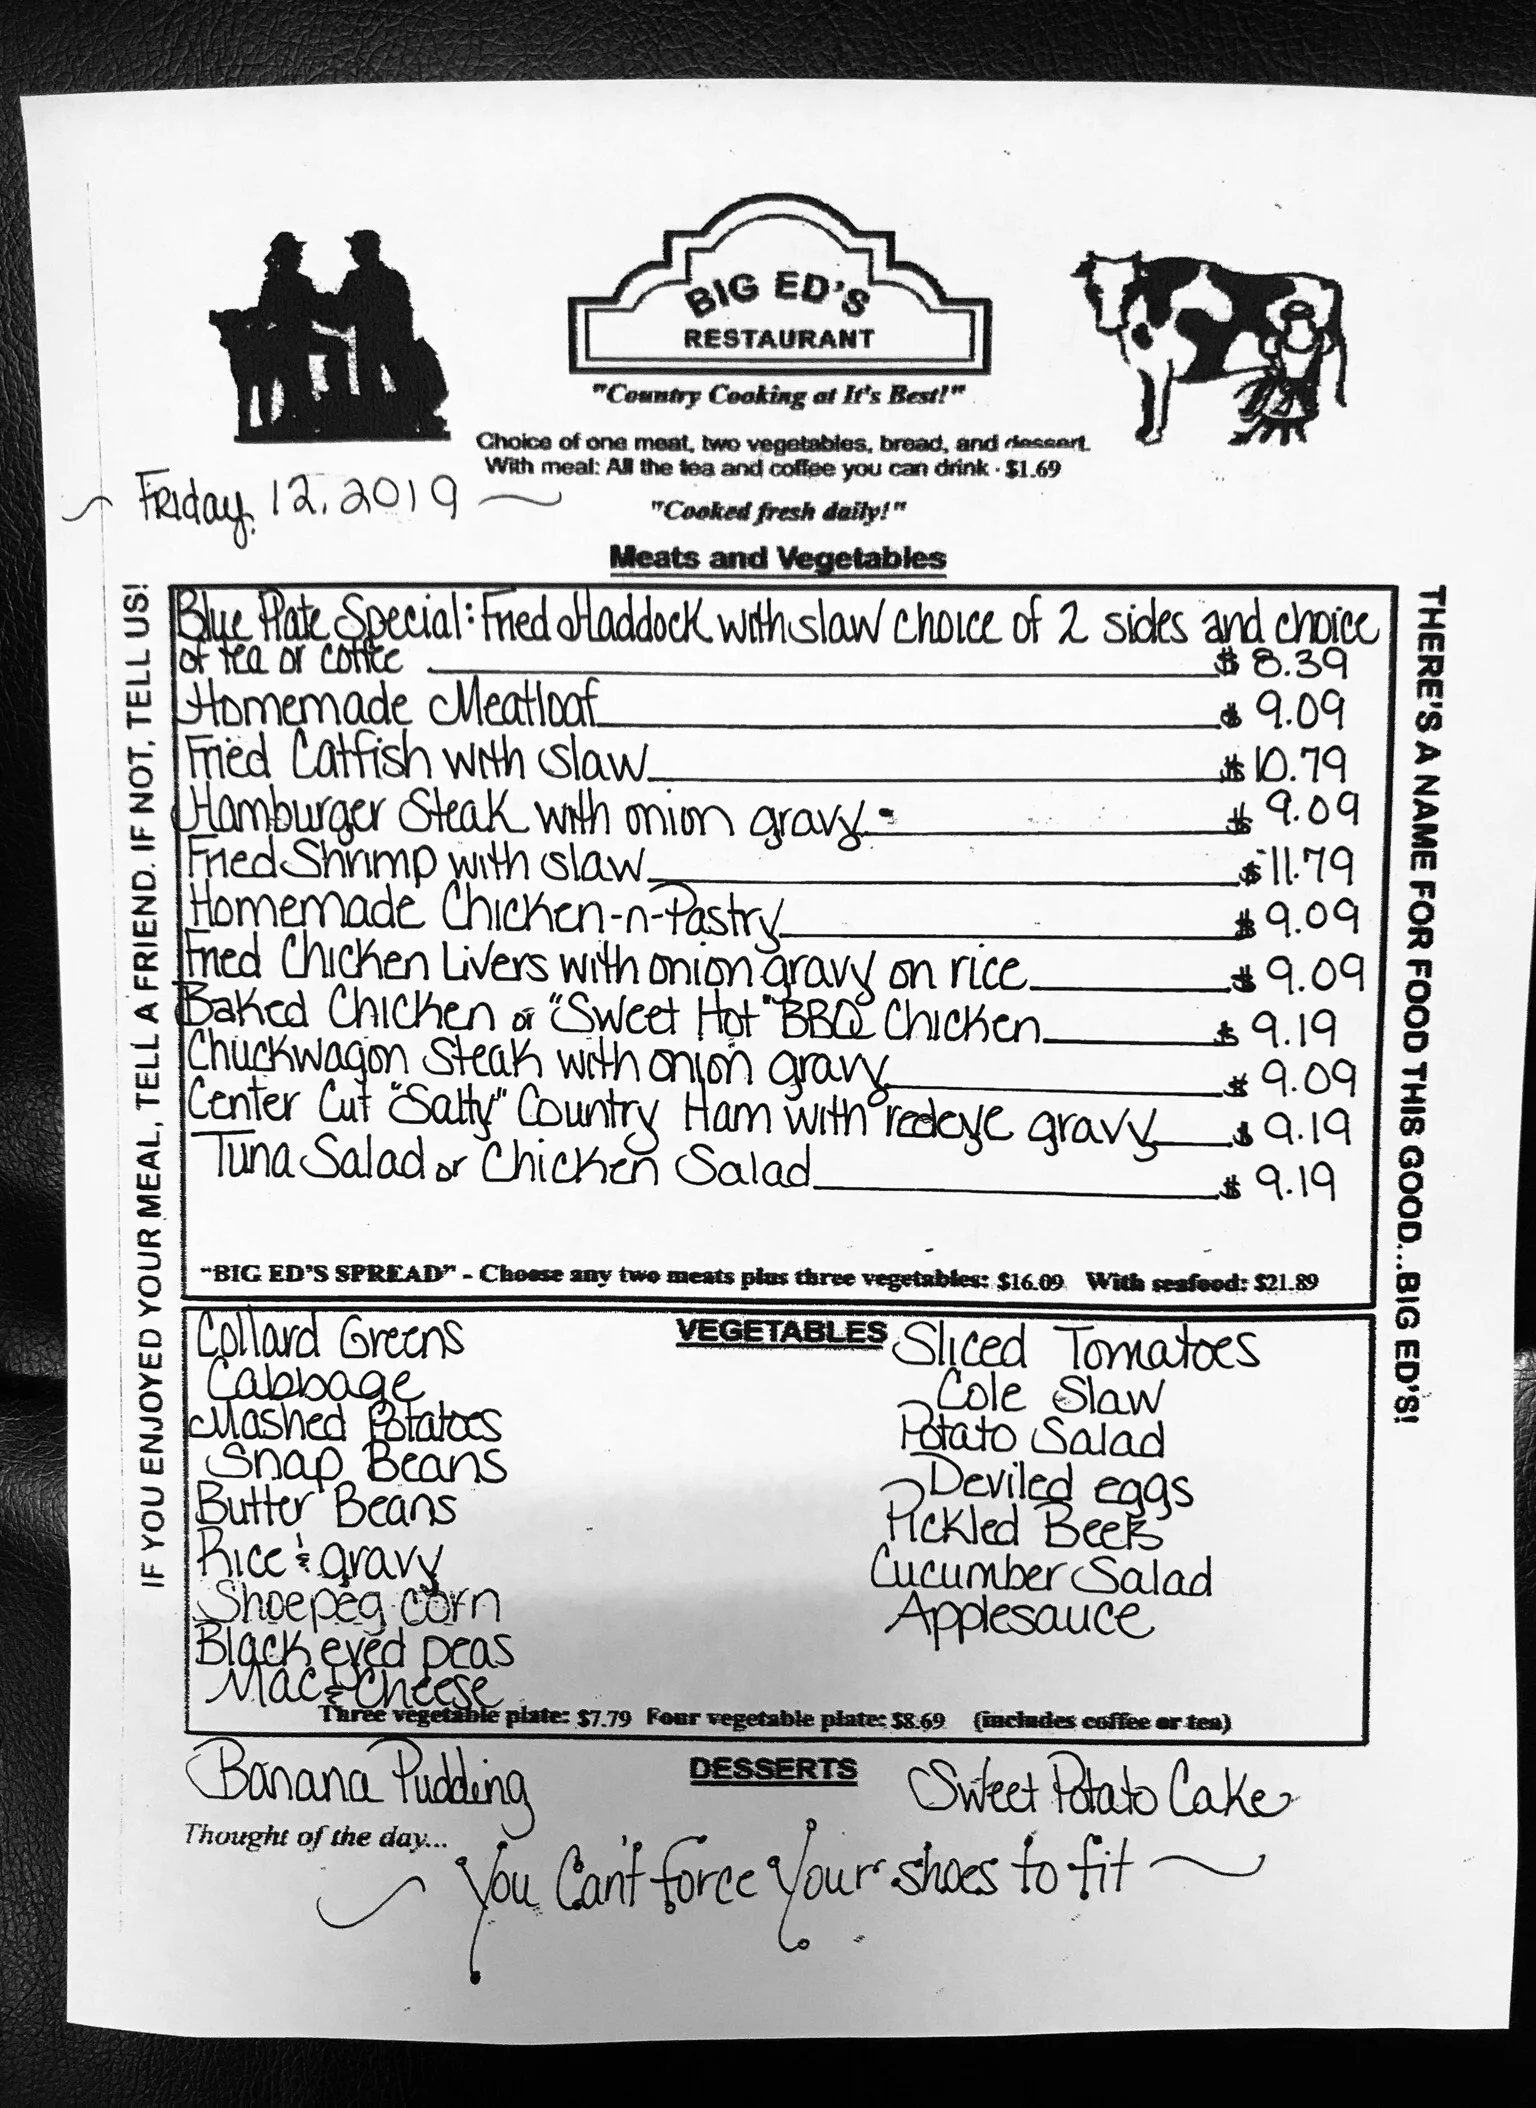 BIG ED'S
RESTAURANT
"Country Cooking at It's Best!"
Choice of one meat, two vegetables, bread, and dessert.
With meal: All the tea and coffee you can drink - $1.69
Friday, 12, 2019
"Cooked fresh daily!"
Meats and Vegetables
IF YOU ENJOYED YOUR MEAL, TELL A FRIEND. IF NOT, TELL US!
Blue Plate Special: Fried Haddock with slaw choice of 2 sides and choice
of tea or coffee $ 8.39
Homemade Meatloaf $ 9.09
Fried Catfish with slaw $ 10.79
Hamburger Steak with onion gravy $ 9.09
Fried Shrimp with slaw $ 11.79
Homemade Chicken-n-Pastry $ 9.09
Fried Chicken Livers with onion gravy on rice $ 9.09
Baked Chicken or "Sweet Hot" BBQ Chicken $ 9.19
Chuckwagon Steak with onion gravy $ 9.09
Center Cut "Salty" Country Ham with redeye gravy $ 9.19
Tuna Salad or Chicken Salad $ 9.19
"BIG ED'S SPREAD" - Choose any two meats plus three vegetables: $16.09 With seafood: $21.89
THERE'S A NAME FOR FOOD THIS GOOD...BIG ED'S!
VEGETABLES
Collard Greens
Cabbage
Mashed Potatoes
Snap Beans
Butter Beans
Rice & gravy
Shoepeg corn
Black eyed peas
Mac & Cheese
Sliced Tomatoes
Cole Slaw
Potato Salad
Deviled eggs
Pickled Beets
Cucumber Salad
Applesauce
Three vegetable plate: $7.79 Four vegetable plate: $8.69 (includes coffee or tea)
DESSERTS
Banana Pudding
Sweet Potato Cake
Thought of the day...
You Can't force Your shoes to fit